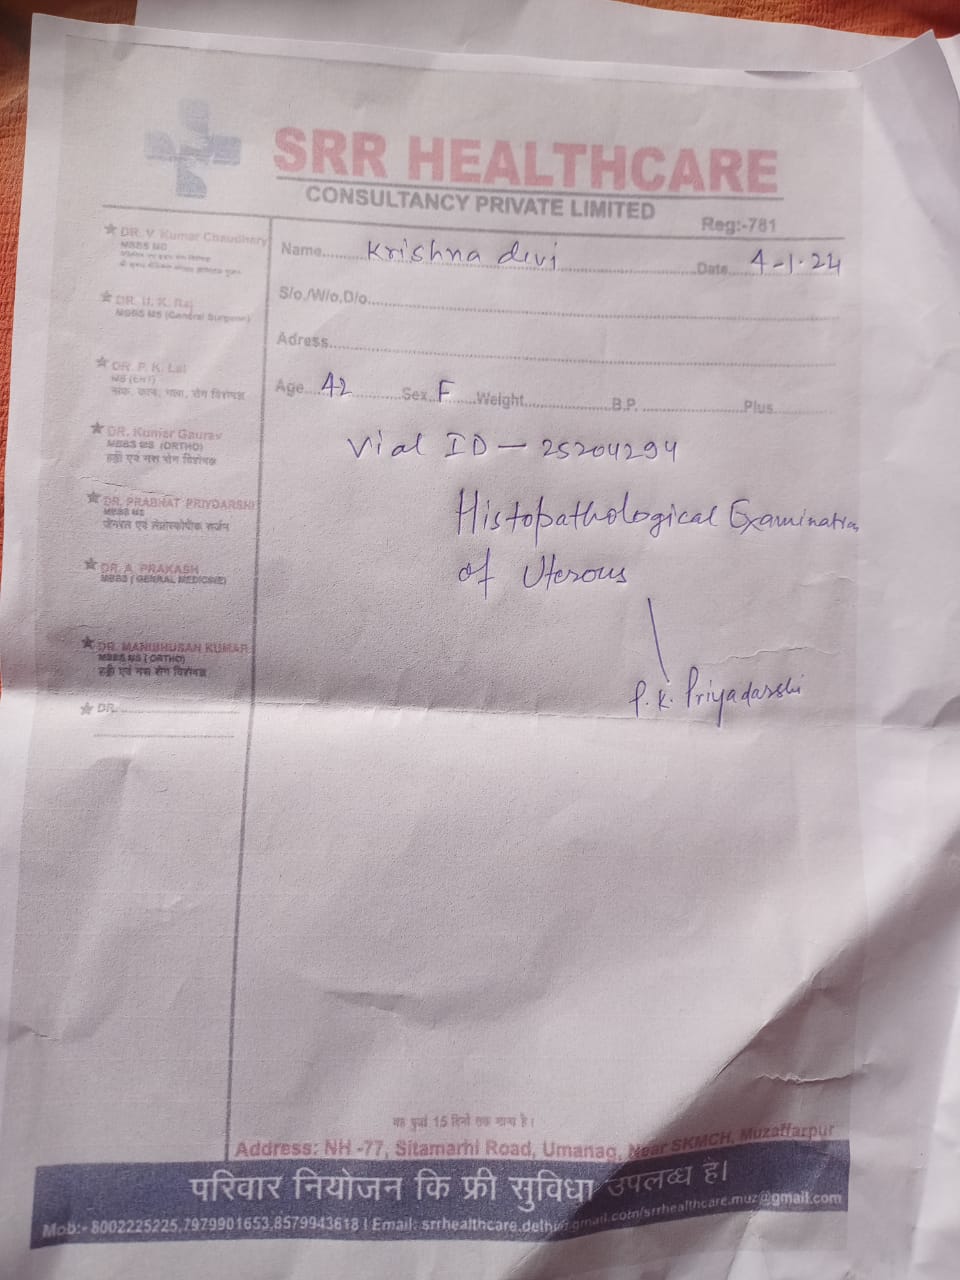 SRR HEALTHCARE
CONSULTANCY PRIVATE LIMITED
Reg:-781
Name...... Krishna devi ......Date.... 4-1-24
S/o./W/o,D/o.
Adress.
Age... 42 ......Sex.. F .....Weight............B.P. ............Plus............
Vial ID - 25204294
Histopathological Examination
of Uterous
P. K. Priyadarshi
★ DR. V Kumar Chaudhary
MBBS MD
★ DR. U. K. Raj
MBBS MS (General Surgeon)
★ DR. P. K. Lal
MS (ENT)
नाक, कान, गला, रोग विशेषज्ञ
★ DR. Kumar Gaurav
MBBS MS (ORTHO)
हड्डी एवं नस रोग विशेषज्ञ
★ DR. PRABHAT PRIYDARSHI
MBBS MS
जेनरल एवं लेप्रोस्कोपीक सर्जन
★ DR. A. PRAKASH
MBBS ( GENRAL MEDICINE)
★ DR. MANIBHUSAN KUMAR
MBBS MS ( ORTHO)
हड्डी एवं नस रोग विशेषज्ञ
★ DR.
यह पुर्जा 15 दिनों तक मान्य है।
Address: NH -77, Sitamarhi Road, Umanag, Near SKMCH, Muzaffarpur
परिवार नियोजन कि फ्री सुविधा उपलब्ध है।
Mob:- 8002225225,7979901653,8579943618 I Email: srrhealthcare.delhi@gmail.com/srrhealthcare.muz@gmail.com